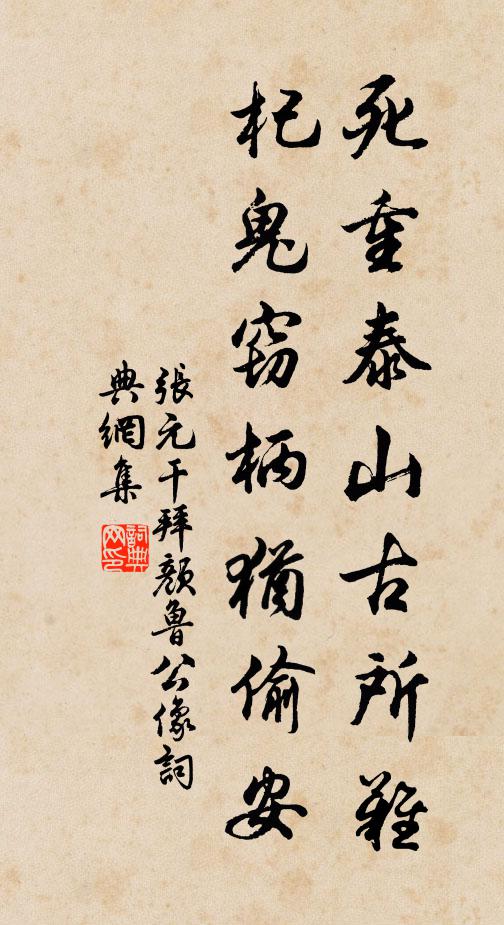 死重泰山古所難
杞鬼竊柄猶偷安
張元干拜顏魯公像詞
典網集
詞典網印